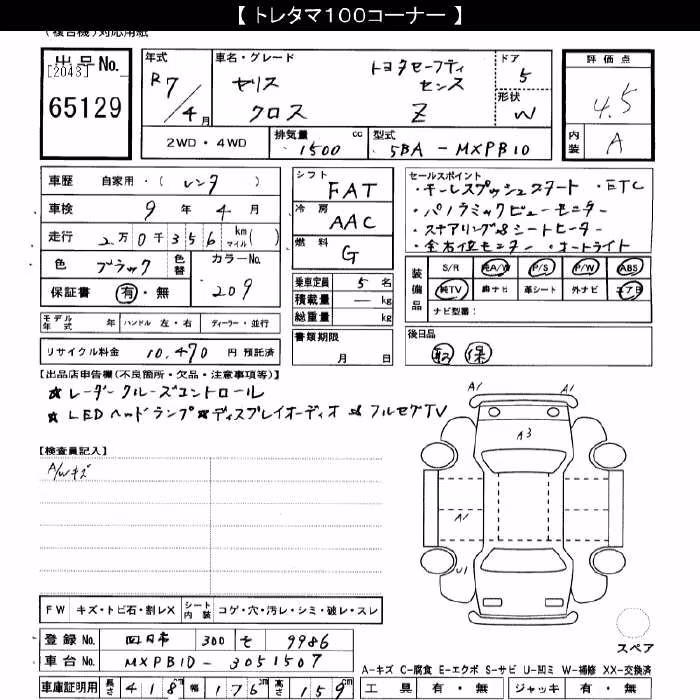 【 トレタマ100コーナー 】
(複合機)対応用紙
出品No. [2043] 65129
年式 R7/4月
車名・グレード ヤリス クロス トヨタセーフティ センス Z
ドア 5
形状 W
評価点 4.5
内装 A
2WD・4WD
排気量 1500 cc
型式 5BA-MXPB10
車歴 自家用・(レンタ)
車検 9年4月
走行 2万0千356 km マイル( )
色 ブラック 色替 カラーNo. 209
保証書 有・無
モデル年式 年 ハンドル 左・右 ディーラー・並行
リサイクル料金 10,470 円 預託済
シフト FAT
冷房 AAC
燃料 G
乗車定員 5名
積載量 ― kg
総重量 kg
書類期限 月 日
セールスポイント
・キーレスプッシュスタート ・ETC
・パノラミックビューモニター
・ステアリング&シートヒーター
・全方位モニター ・オートライト
装備品 S/R 純A/W P/S P/W ABS
純TV 純ナビ 革シート 外ナビ エアB
ナビ型番:
後日品 取 保
【出品店申告欄(不良箇所・欠品・注意事項等)】
★レーダークルーズコントロール
★LEDヘッドランプ★ディスプレイオーディオ★フルセグTV
【検査員記入】
A/Wキズ
A1 A1
A3
A1
U1
スペア
FW キズ・トビ石・割レX シート内装 コゲ・穴・汚レ・シミ・破レ・スレ
登録No. 四日市 300 そ 9986
車台No. MXPB10-3051507
車庫証明用 長さ 418cm 幅 176cm 高さ 159cm
A-キズ C-腐食 E-エクボ S-サビ U-凹ミ W-補修 XX-交換済
工具 有・無 ジャッキ 有・無